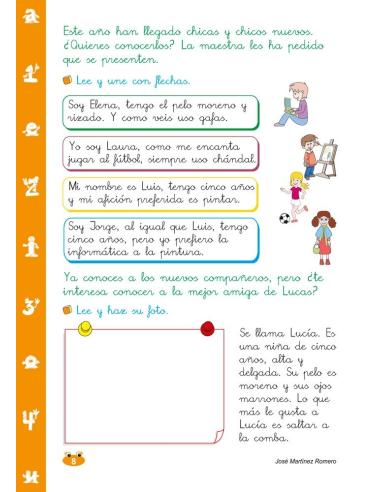 Este año han llegado chicas y chicos nuevos.
¿Quieres conocerlos? La maestra les ha pedido
que se presenten.
Lee y une con flechas.
Soy Elena, tengo el pelo moreno y
rizado. Y como veis uso gafas.
Yo soy Laura, como me encanta
jugar al fútbol, siempre uso chándal.
Mi nombre es Luis, tengo cinco años
y mi afición preferida es pintar.
Soy Jorge, al igual que Luis, tengo
cinco años, pero yo prefiero la
informática a la pintura.
Ya conoces a los nuevos compañeros, pero ¿te
interesa conocer a la mejor amiga de Lucas?
Lee y haz su foto.
Se llama Lucía. Es
una niña de cinco
años, alta y
delgada. Su pelo es
moreno y sus ojos
marrones. Lo que
más le gusta a
Lucía es saltar a
la comba.
8
José Martínez Romero
a
1
e
2
i
3
o
4
u